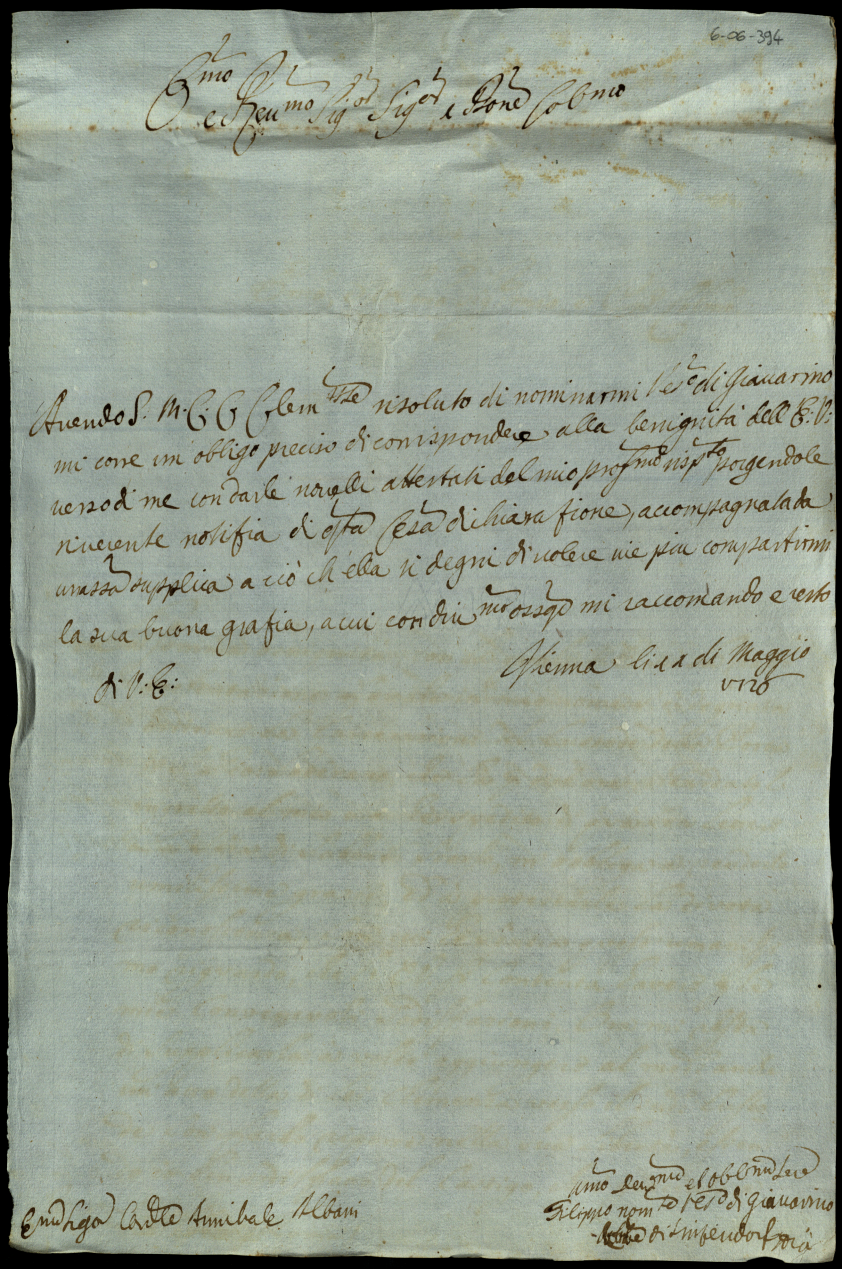 6-06-394
Em̄o
e Reu^mo Sig^or Sig^or e Pñone Col^mo
Auendo S. M. C. C. Clem^te risoluto di nominarmi Ve^o di Giauarino
mi corre un obligo preciso di corrispondere alla benignità dell E: V:
verso di me con darle nouelli attestati del mio prof^mo risp^to porgendole
riuerente notifia di q̃ta Cesã dichiarafione, accompagnata da
supplica a ciò ch'ella si degni di volere vie piu compartirmi
la sua buona grafia, a cui con diu^mo osseq̃ mi raccomando e resto
Vienna li di Maggio
di V: E:
Em̃o Sig^r Card^le Annibale Albani
deu^mo et obbl^mo Ser^e
Filippo nom^to Ves^o di Giauarino
di Sinfendorf